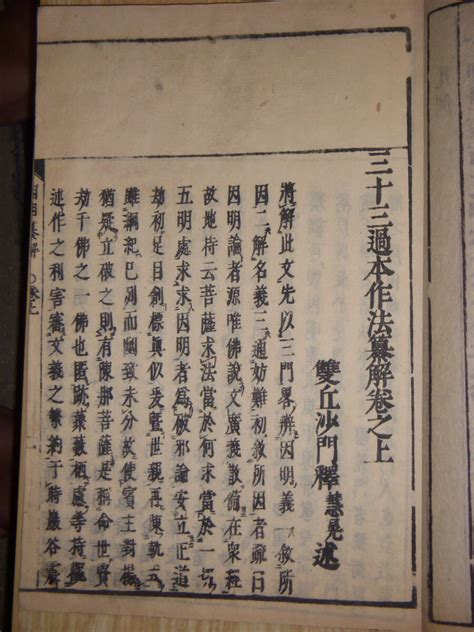 三十三過本作法纂解卷之上
雙丘沙門釋慧晃述
將解此文先以三門畧辨因明義一敘所
因二解名義三通妨難初敘所因者疏曰
因明論者源唯佛說文廣義散備在衆經
故地持云菩薩求法當於何求當於一切
五明處求求因明者爲破邪論安立正道
劫初足目創標眞似爰曁世親再陳軌式
雖綱紀已列而幽致未分故使賓主對揚
猶疑立破之則有陳那菩薩是稱命世賢
劫千佛之一佛也匿跡巖藪栖慮等持觀
述作之利害審文義之繁約于時巖谷震
因明纂解 卷上